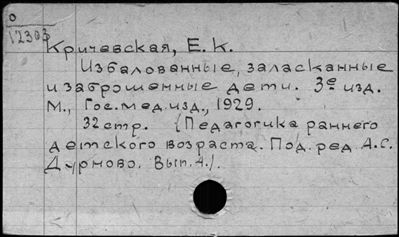 0
12303
Кричевская, Е. К.
Избалованные, заласканные
и заброшенные дети. 3е изд.
М., Гос. мед. изд., 1929.
32 стр. (Педагогика раннего
детского возраста. Под. ред. А. С.
Дурново. Вып. 4.).